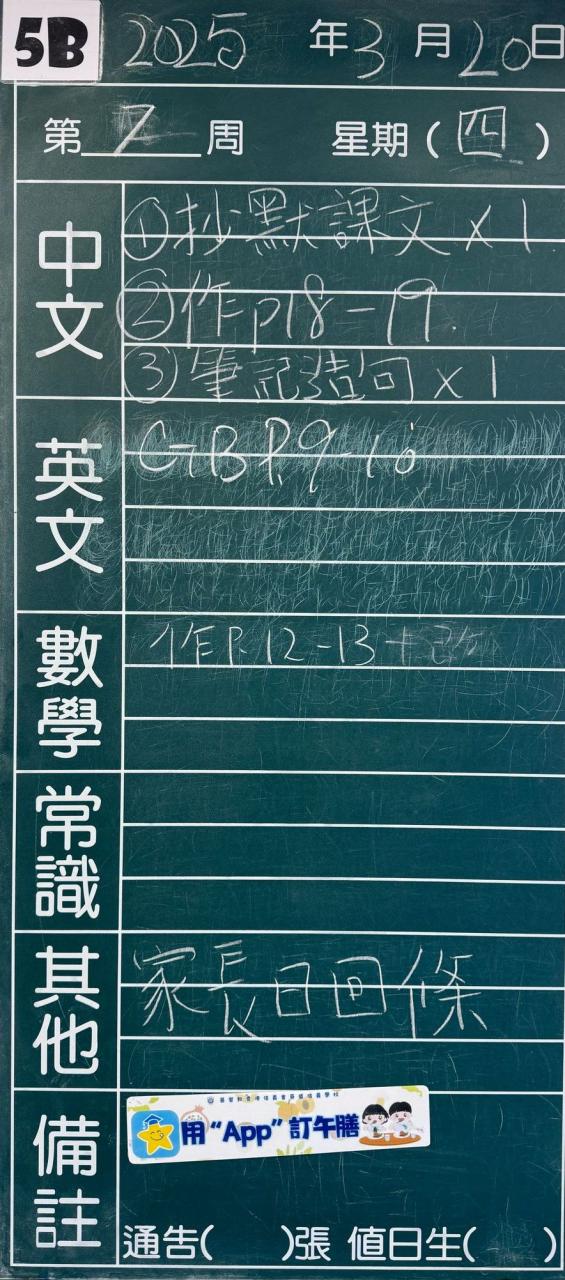 5B 2025 年 3 月 20 日
第 7 周 星期 ( 四 )
中文
① 抄默課文 x 1
② 作 p18-19.
③ 筆記造句 x 1
英文
GB P.9-10
數學
作 P. 12-13 + 改
常識
其他
家長日回條
備註
用 "App" 訂午膳
通告( )張 值日生( )